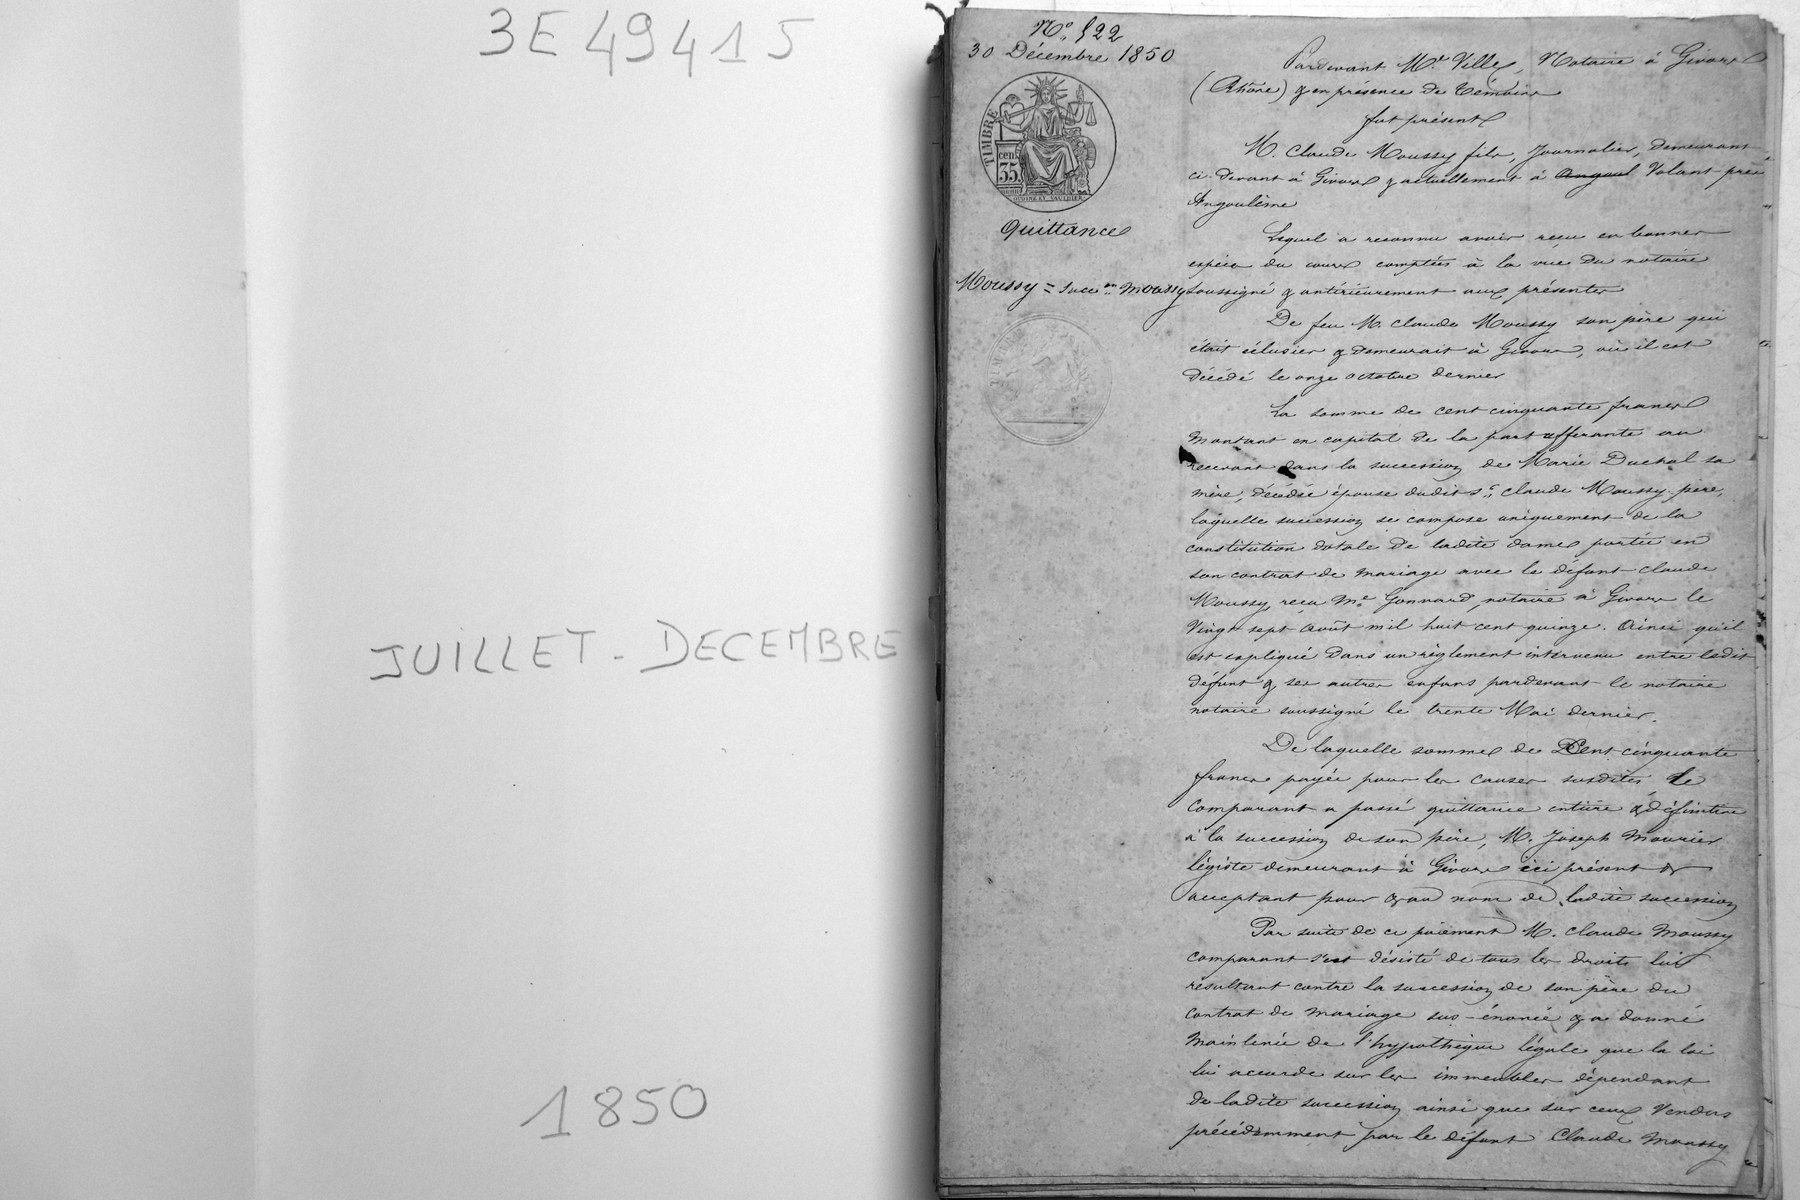 3E 49415
JUILLET - DECEMBRE
1850
N.° 522
30 Décembre 1850
TIMBRE
cen.
35
OUDINE ET VAUTHIER
Quittance
Moussy = succ.on Moussy
Pardevant M.e Ville, Notaire à Givors
(Rhône) & en présence de témoins
fut présent
M. Claude Moussy fils, Journalier, demeurant
ci-devant à Givors & actuellement à Angoul Volant près
Angoulême
Lequel a reconnu avoir reçu en bonnes
espèces du cours comptées à la vue du notaire
soussigné & antérieurement aux présentes
De feu M. Claude Moussy son père qui
était éclusier & demeurait à Givors, où il est
décédé le onze octobre dernier
La somme de cent cinquante francs
montant en capital de la part afférante au
recevant dans la succession de Marie Duchal sa
mère, décédée épouse dudit S.r Claude Moussy père,
laquelle succession se compose uniquement de la
constitution dotale de ladite dame portée en
son contrat de mariage avec le défunt Claude
Moussy, reçu M.e Gonnard, notaire à Givors le
vingt sept août mil huit cent quinze. Ainsi qu'il
est expliqué dans un règlement intervenu entre ledit
défunt & ses autres enfans pardevant le notaire
notaire soussigné le trente Mai dernier.
De laquelle somme de Cent cinquante
francs payée pour les causes susdites, le
comparant a passé quittance entière & définitive
à la succession de son père, M. Joseph Mourier
légiste demeurant à Givors ici présent &
acceptant pour & au nom de ladite succession
Par suite de ce paiement M. Claude Moussy
comparant s'est désisté de tous les droits lui
résultant contre la succession de son père du
contrat de mariage sus-énoncé & a donné
mainlevée de l'hypothèque légale que la loi
lui accorde sur les immeubles dépendant
de ladite succession ainsi que sur ceux vendus
précédemment par le défunt Claude Moussy